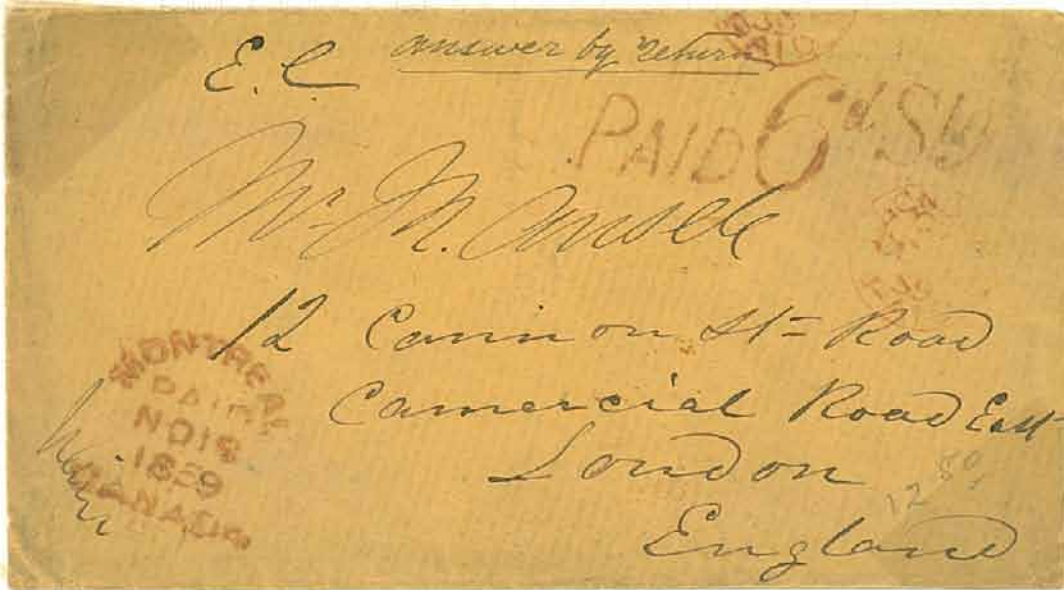 answer by return
E. C
PAID 6d Stg
Mr M. Ansell
12 Cannon St= Road
Camercial Road East
London
England
MONTREAL
PAID
NO 18
1859
CANADA